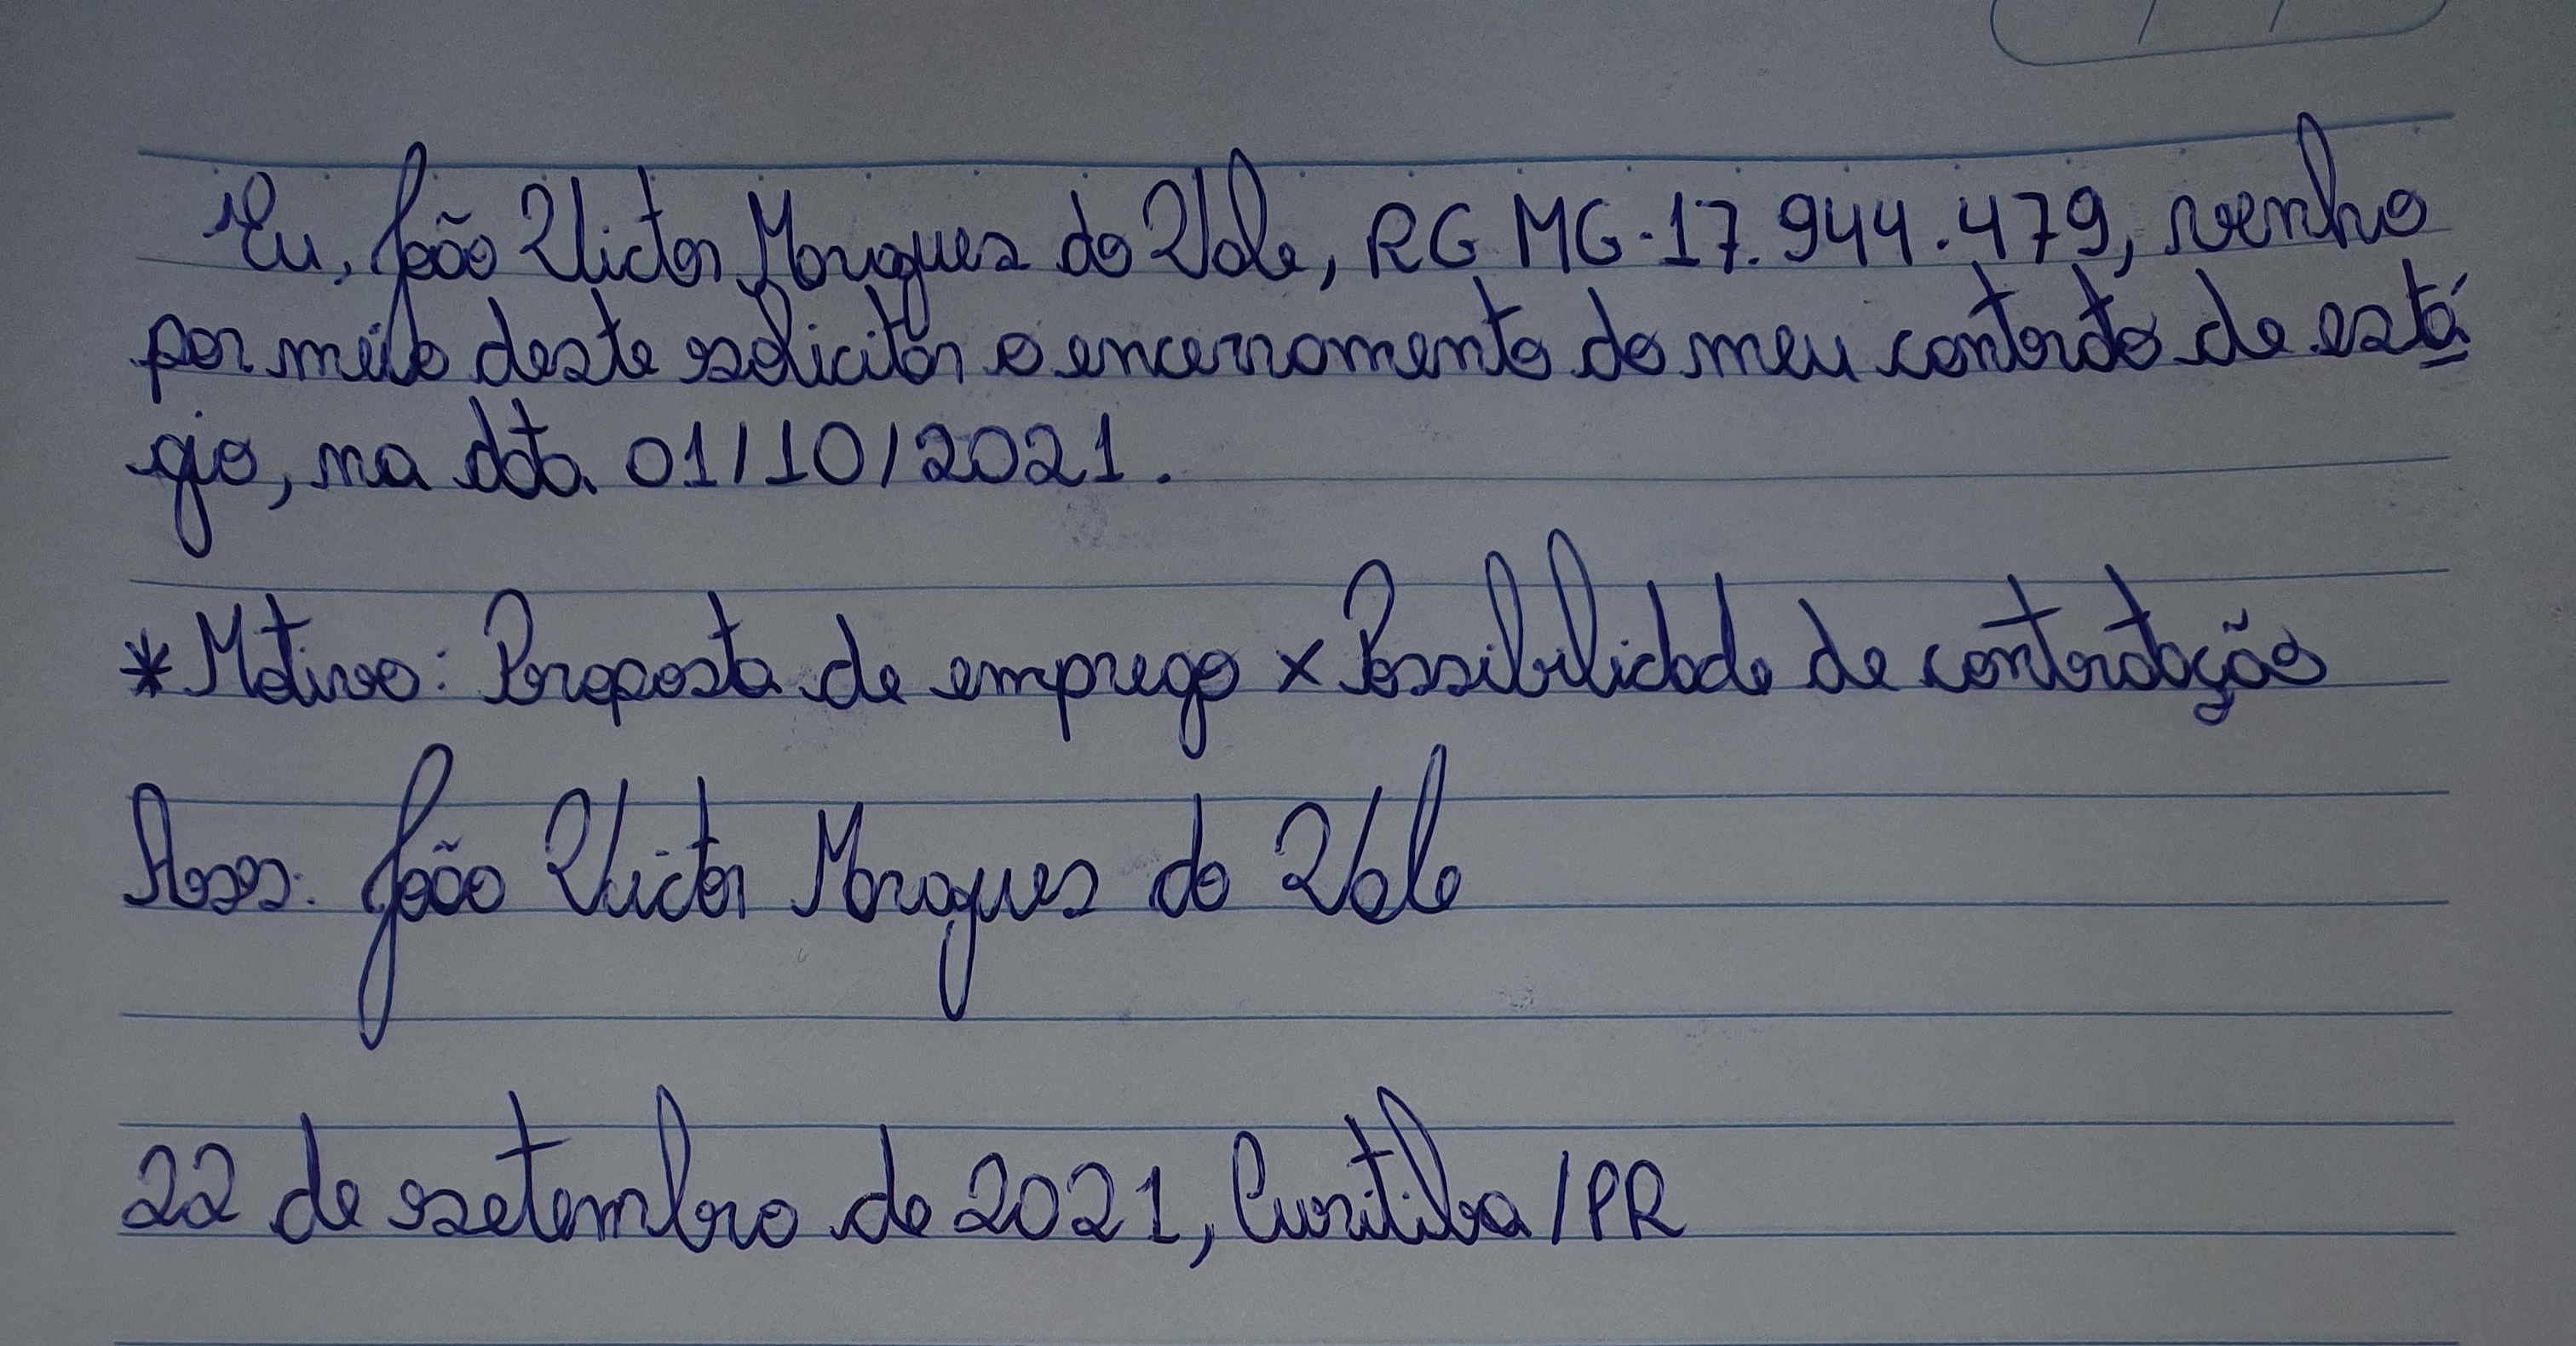 Eu, João Victor Marques do Vale, RG MG-17.944.479, venho
por meio deste solicitar o encerramento do meu contrato de está
gio, na data 01/10/2021.
*Motivo: Proposta de emprego x Possibilidade de contratação
Ass: João Victor Marques do Vale
22 de setembro de 2021, Curitiba/PR